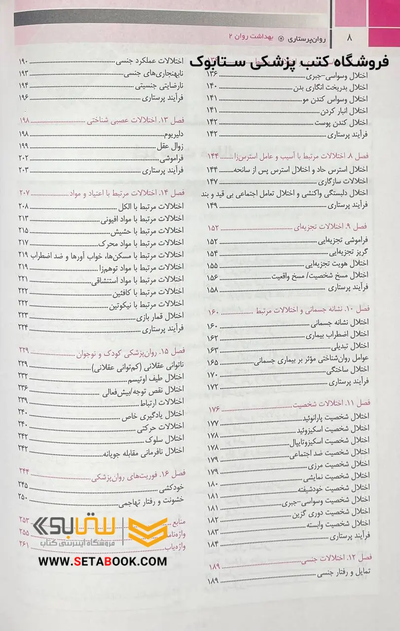 ۸ روان‌پرستاری بهداشت روان ۲
فروشگاه کتب پزشکی ستابوک
اختلال وسواسی-جبری ۱۳۶
اختلال بدریخت انگاری بدن ۱۴۰
اختلال وسواس کندن مو ۱۴۱
اختلال انبار کردن ۱۴۱
اختلال کندن پوست ۱۴۲
فرآیند پرستاری ۱۴۲
فصل ۸. اختلالات مرتبط با آسیب و عامل استرس‌زا ۱۴۴
اختلال استرس حاد و اختلال استرس پس از سانحه ۱۴۴
اختلالات سازگاری ۱۴۷
اختلال دلبستگی واکنشی و اختلال تعامل اجتماعی بی قید و بند
فرآیند پرستاری ۱۴۹
فصل ۹. اختلالات تجزیه‌ای ۱۵۲
فراموشی تجزیه‌ایی ۱۵۲
گریز تجزیه‌ایی
اختلال هویت تجزیه‌ایی ۱۵۵
اختلال مسخ شخصیت/ مسخ واقعیت ۱۵۶
فرآیند پرستاری ۱۵۸
فصل ۱۰. نشانه جسمانی و اختلالات مرتبط ۱۶۰
اختلال نشانه جسمانی ۱۶۰
اختلال اضطراب بیماری ۱۶۲
اختلال تبدیلی ۱۶۳
عوامل روان‌شناختی مؤثر بر بیماری جسمانی ۱۶۵
اختلال ساختگی ۱۷۰
فرآیند پرستاری ۱۷۲
فصل ۱۱. اختلالات شخصیت ۱۷۶
اختلال شخصیت پارانوئید ۱۷۷
اختلال شخصیت اسکیزوئید ۱۷۸
اختلال شخصیت اسکیزوتایپال ۱۷۸
اختلال شخصیت ضد اجتماعی ۱۷۹
اختلال شخصیت مرزی ۱۷۹
اختلال شخصیت نمایشی ۱۸۰
اختلال شخصیت خودشیفته ۱۸۱
اختلال شخصیت وسواسی-جبری ۱۸۱
اختلال شخصیت دوری گزین ۱۸۲
اختلال شخصیت وابسته ۱۸۳
فرآیند پرستاری ۱۸۴
فصل ۱۲. اختلالات جنسی ۱۸۹
تمایل و رفتار جنسی ۱۸۹
اختلالات عملکرد جنسی ۱۹۰
نابهنجاری‌های جنسی ۱۹۲
نارضایتی جنسیتی ۱۹۴
فرآیند پرستاری ۱۹۶
فصل ۱۳. اختلالات عصبی شناختی ۱۹۸
دلیریوم ۱۹۸
زوال عقل ۱۹۹
فراموشی ۲۰۲
فرآیند پرستاری ۲۰۳
فصل ۱۴. اختلالات مرتبط با اعتیاد و مواد ۲۰۷
اختلالات مرتبط با الکل ۲۰۸
اختلالات مرتبط با مواد افیونی ۲۱۳
اختلالات مرتبط با حشیش ۲۱۵
اختلالات مرتبط با مواد محرک ۲۱۷
اختلالات مرتبط با مسکن‌ها، خواب آورها و ضد اضطراب ۲۱۹
اختلالات مرتبط با مواد توهم‌زا ۲۱۹
اختلالات مرتبط با مواد استنشاقی
اختلالات مرتبط با کافئین ۲۲۲
اختلالات مرتبط با نیکوتین ۲۲۲
اختلال قمار بازی ۲۲۳
فرآیند پرستاری ۲۲۴
فصل ۱۵. روان‌پزشکی کودک و نوجوان ۲۲۹
ناتوانی عقلانی (کم‌توانی عقلانی) ۲۲۹
اختلال طیف اوتیسم
اختلال نقص توجه/بیش‌فعالی ۲۳۶
اختلالات ارتباط
اختلال یادگیری خاص ۲۴۰
اختلالات حرکتی ۲۴۰
اختلال سلوک
اختلال نافرمانی مقابله جویانه
فصل ۱۶. فوریت‌های روان‌پزشکی ۲۴۴
خودکشی ۲۴۵
خشونت و رفتار تهاجمی ۲۵۰
منابع ۲۵۲
واژه‌نامه ۲۵۵
واژه‌یاب ۲۶۱
ستابوک
فروشگاه اینترنتی کتاب
WWW.SETABOOK.COM